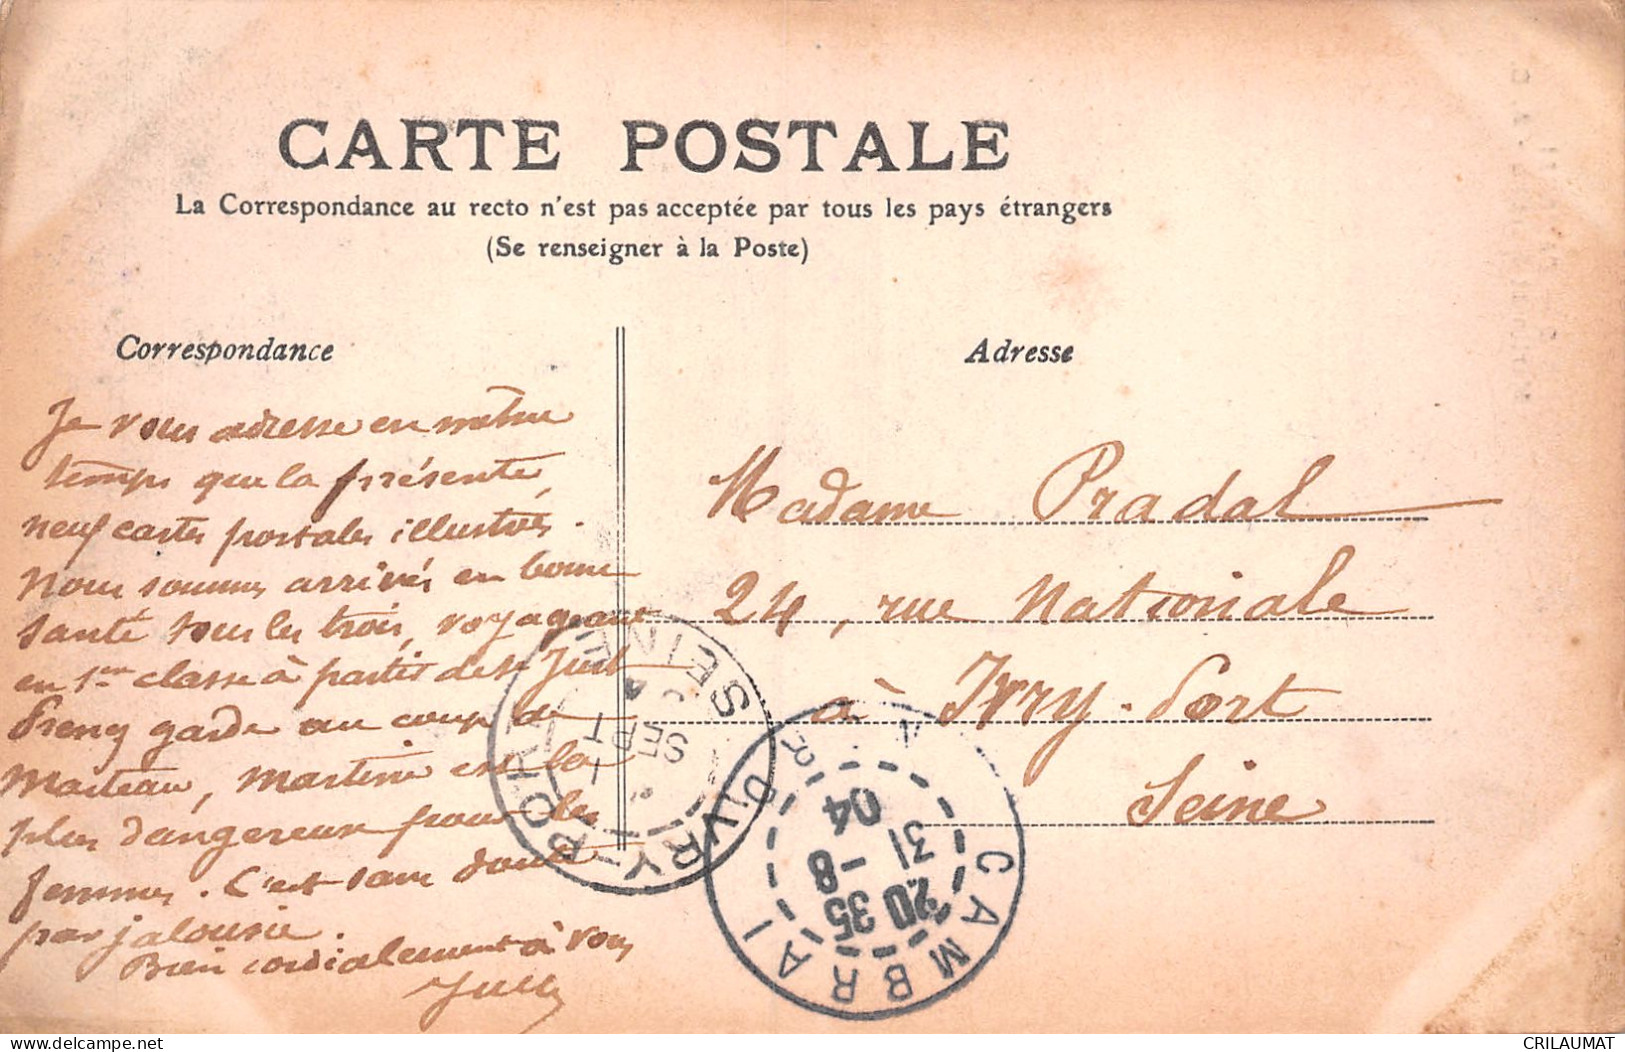 CARTE POSTALE
La Correspondance au recto n'est pas acceptée par tous les pays étrangers
(Se renseigner à la Poste)
Correspondance
Je vous adresse en même
temps que la présente,
neuf cartes postales illustrées.
Nous sommes arrivés en bonne
santé tous les trois, voyageant
en 1ère classe à partir de St Just
Prenez garde au coup de
Marteau, Martine est la
plus dangereuse pour les
femmes. C'est sans doute
par jalousie.
Bien cordialement à vous
Adresse
Madame Pradal
24, rue Nationale
à Ivry-Port
Seine
IVRY-PORT SEINE
SEPT
CAMBRAI
20 35
31 -8
04
CRILAUMAT